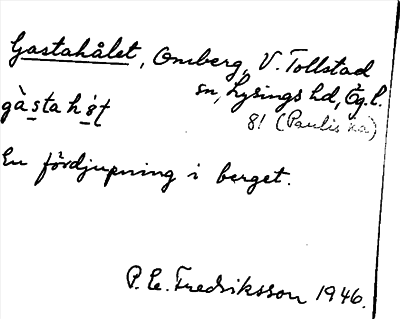 Gastahålet, Omberg, V. Tollstad
sn, Lysings hd, Ög. l.
gàsta h
81 (Paulis ka)
En fördjupning i berget.
P. E. Fredriksson 1946.